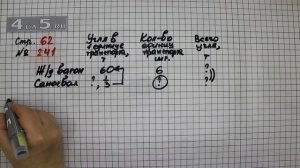 4 из 5 ми
Стр. 62
№ 241
Угля в 1 единице транспорта, т
Кол-во единиц транспорта шт.
Всего угля, т
Ж/д вагон 60 6 ?
Самосвал ?, ? ?